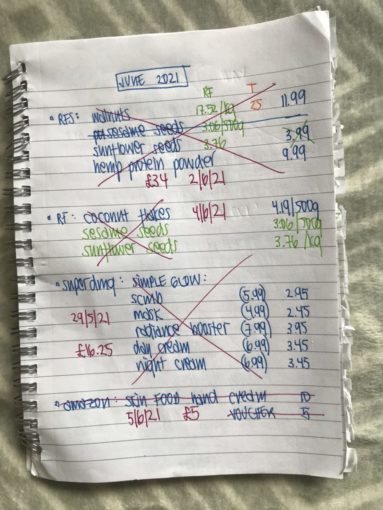 JUNE 2021
RF T
• RFS: walnuts 17.52/kg 25 11.99
sesame seeds 3.06/500g
sunflower seeds 3.76 3.99
hemp protein powder 9.99
£34 2/6/21
• RF: coconut flakes 4/6/21 4.19/500g
sesame seeds 3.06/500g
sunflower seeds 3.76/kg
• superdrug: SIMPLE GLOW:
scrub (5.99) 2.95
29/5/21 mask (4.99) 2.45
radiance booster (7.99) 3.95
£16.25 day cream (6.99) 3.45
night cream (6.99) 3.45
• amazon: SKIN FOOD hand cream 10
5/6/21 £5 VOUCHER 5